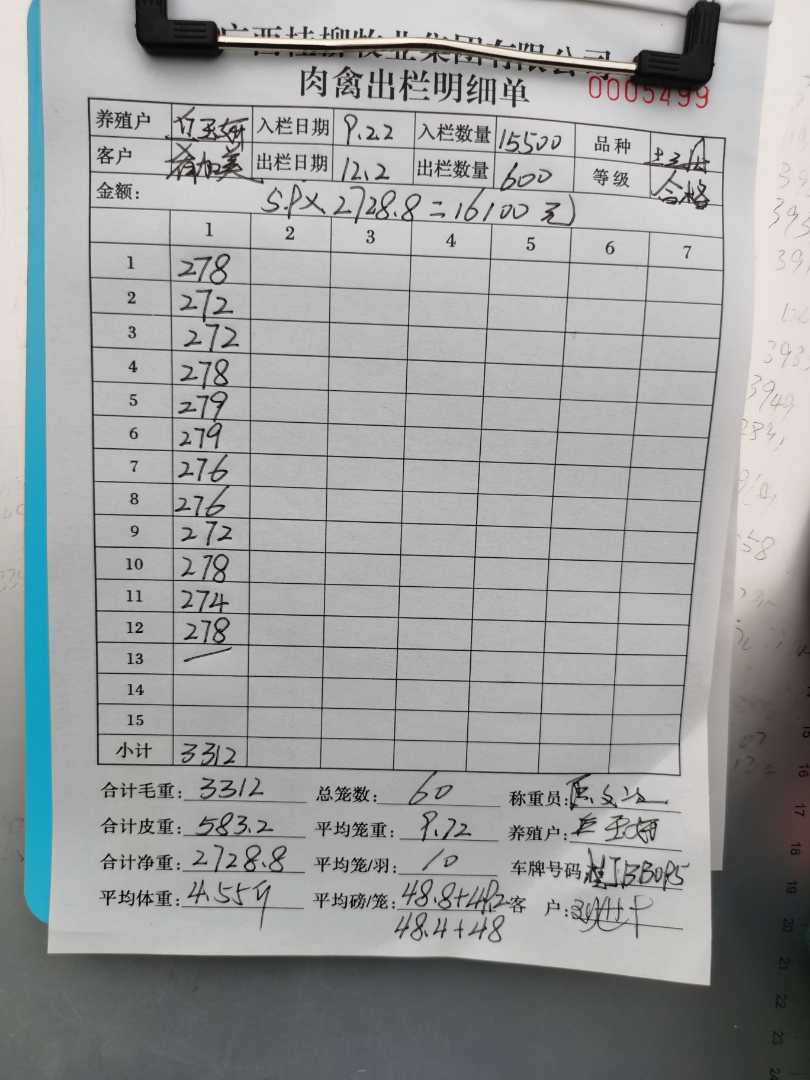 广西桂柳牧业集团有限公司
肉禽出栏明细单 0005499
养殖户 入栏日期 9.22 入栏数量 15500 品种
客户 出栏日期 12.2 出栏数量 600 等级 合格
金额: 5.9× 2728.8=16100元
1 2 3 4 5 6 7
1 278
2 272
3 272
4 278
5 279
6 279
7 276
8 276
9 272
10 278
11 274
12 278
13
14
15
小计 3312
合计毛重: 3312 总笼数: 60 称重员:
合计皮重: 583.2 平均笼重: 9.72 养殖户:
合计净重: 2728.8 平均笼/羽: 10 车牌号码 桂JBB095
平均体重: 4.55斤 平均磅/笼: 48.8+49.2 客 户:
48.4+48